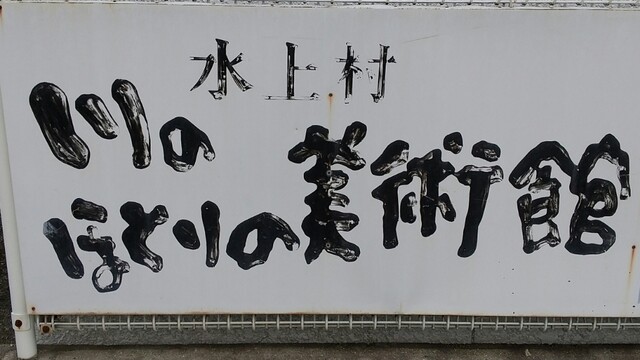 水上村
川の
ほとりの美術館